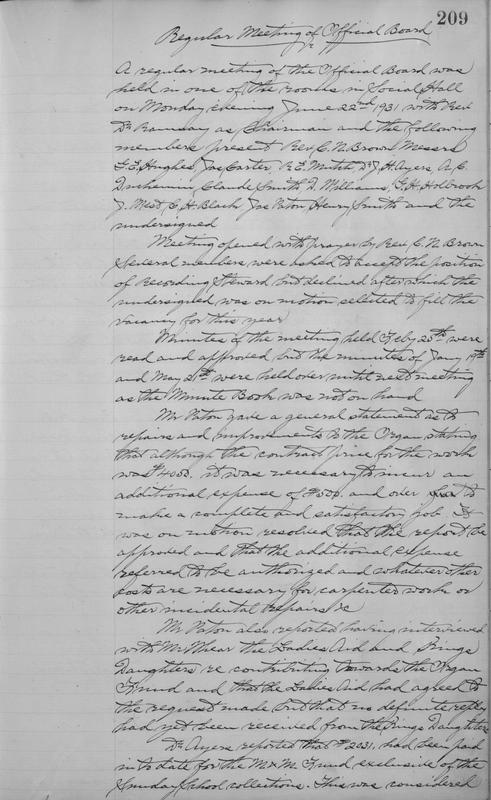 209
Regular Meeting of Official Board
A regular meeting of the Official Board was
held in one of the rooms in Social Hall
on Monday evening June 22nd 1931 with Rev
Dr Ramsay as Chairman and the following
members present Rev. C. N. Brown Messrs
G. E. Hughes, Jas Carter, R. E. Mutch Dr J. H. Ayers, A. C.
Duchemin Claude Smith D. Williams, G. H. Holbrook
J. West, C. H. Black Jas Paton, Henry Smith and the
undersigned
Meeting opened with prayer by Rev. C. N. Brown
Several members were asked to accept the position
of Recording Steward but declined after which the
undersigned was on motion selected to fill the
vacancy for this year
Minutes of the meeting held Feby 25th were
read and approved but the minutes of Jany 19th
and May 21st were held over until next meeting
as the Minute Book was not on hand
Mr Paton gave a general statement as to
repairs and improvements to the Organ, stating
that although the contract price for the work
was $4000. it was necessary to incur an
additional expense of $500. and over to
make a complete and satisfactory job. It
was on motion resolved that the report be
approved and that the additional expense
referred to be authorized and whatever other
costs are necessary for carpenter work or
other incidental repairs &c
Mr Paton also reported having interviewed
with Mr the Ladies Aid and Kings
Daughters re contributing towards the Organ
Fund and that the Ladies Aid had agreed to
the request made but that no definite reply
had yet been received from the Kings Daughters
Dr Ayers reported that $2031. had been paid
in to date for the M & M Fund exclusive of the
Sunday School collections. This was considered